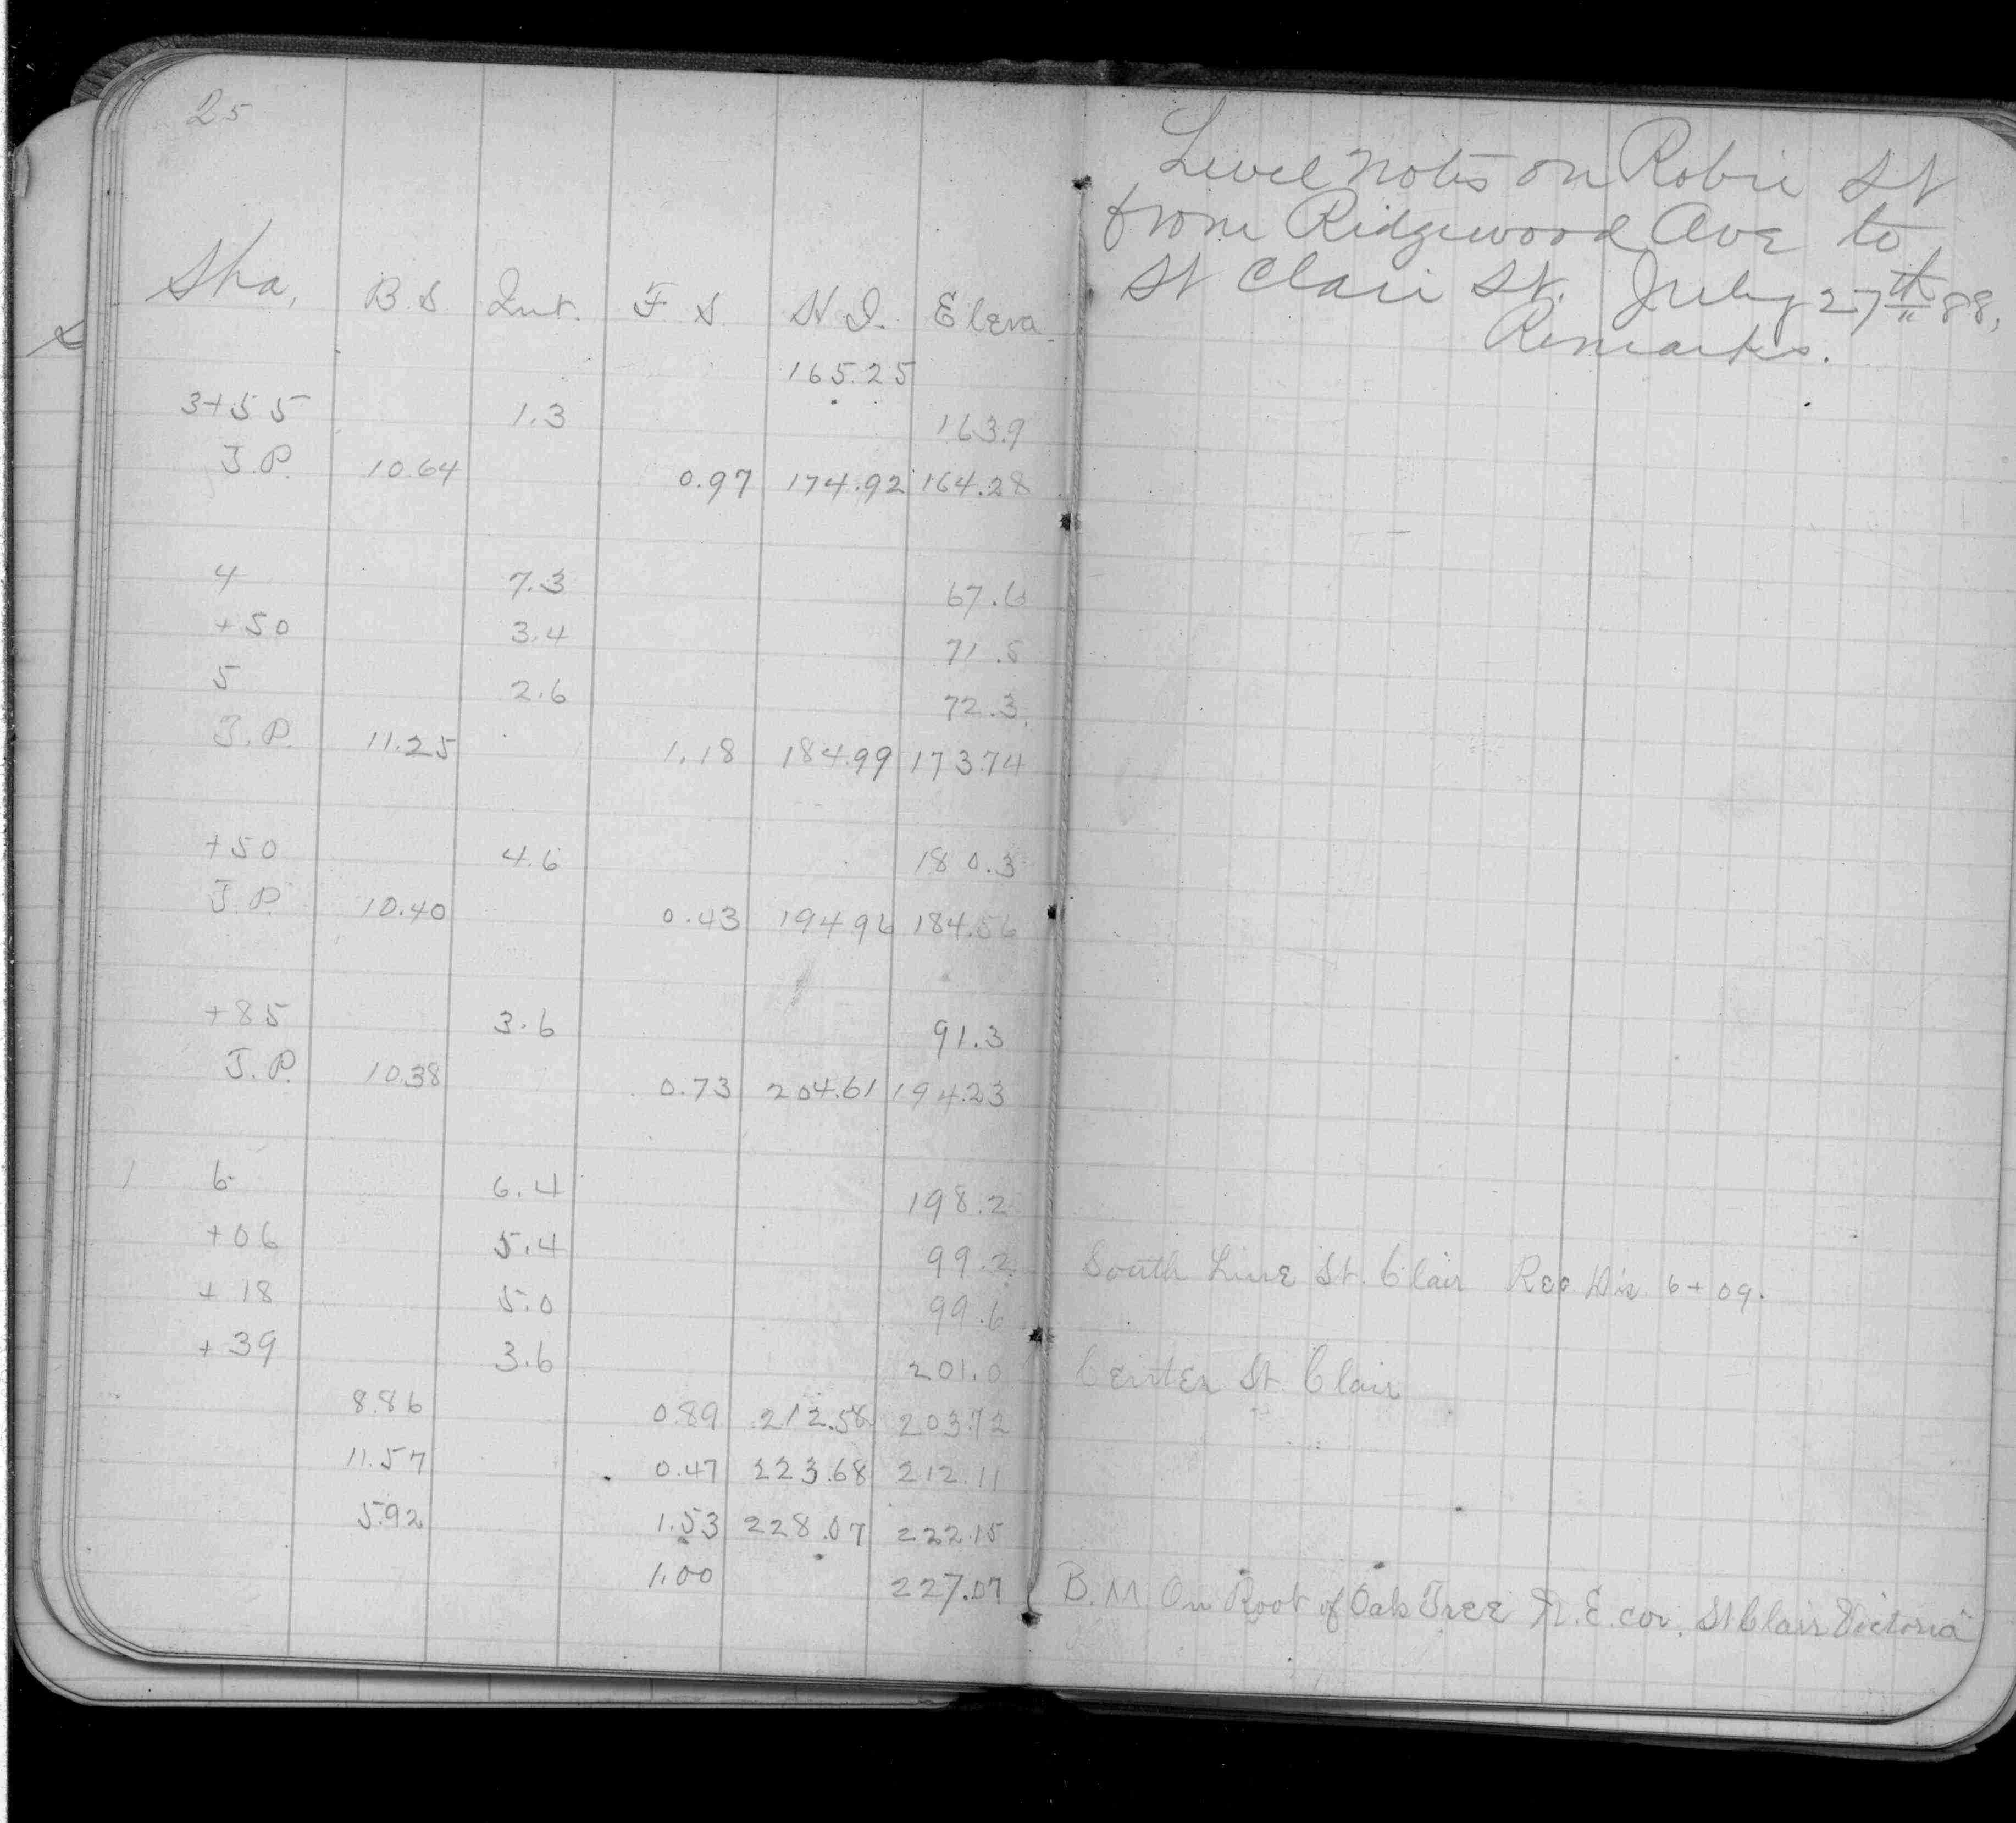 25
Level notes on Robie St
from Ridgewood Ave to
St Clair St. July 27th 88.
Remarks.
Sta. B.S Int. F S H I. Eleva.
165.25
3+55 1.3 163.9
T.P. 10.64 0.97 174.92 164.28
4 7.3 67.6
+50 3.4 71.5
5 2.6 72.3
T.P. 11.25 1.18 184.99 173.74
+50 4.6 180.3
T.P. 10.40 0.43 194.96 184.56
+85 3.6 91.3
T.P. 10.38 0.73 204.61 194.23
6 6.4 198.2
+06 5.4 99.2 South Line St. Clair Rec. Dis. 6+09.
+18 5.0 99.6
+39 3.6 201.0 Center St. Clair
8.86 0.89 212.58 203.72
11.57 0.47 223.68 212.11
5.92 1.53 228.07 222.15
1.00 227.07 B.M. On Root of Oak Tree N.E. cor. St Clair Victoria